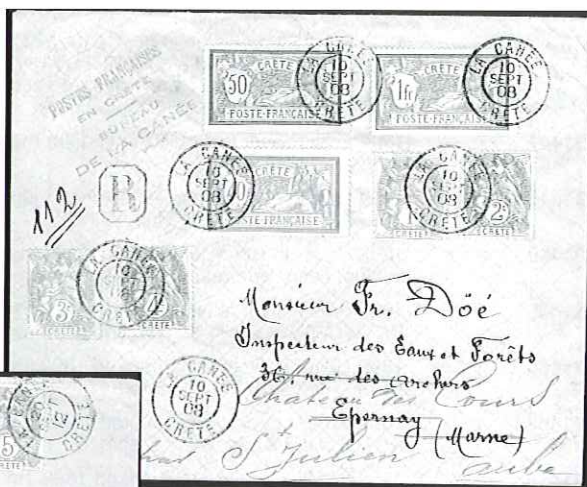 POSTES FRANÇAISES
EN CRÈTE
BUREAU
DE LA CANÉE
R
112
50
CRÈTE
POSTE-FRANÇAISE
LA CANÉE
10
SEPT
08
CRÈTE
1fr
CRÈTE
POSTE-FRANÇAISE
LA CANÉE
10
SEPT
08
CRÈTE
LA CANÉE
10
SEPT
08
CRÈTE
CRÈTE
POSTE-FRANÇAISE
LA CANÉE
10
SEPT
08
CRÈTE
1
2
CRÈTE
3
CRÈTE
4
CRÈTE
LA CANÉE
10
CRÈTE
LA CANÉE
10
SEPT
08
CRÈTE
Monsieur Fr. Döé
Inspecteur des Eaux et Forêts
36, rue des Archers
Château des Cours
Epernay (Marne)
St Julien
aube
5
CRÈTE
CRÈTE